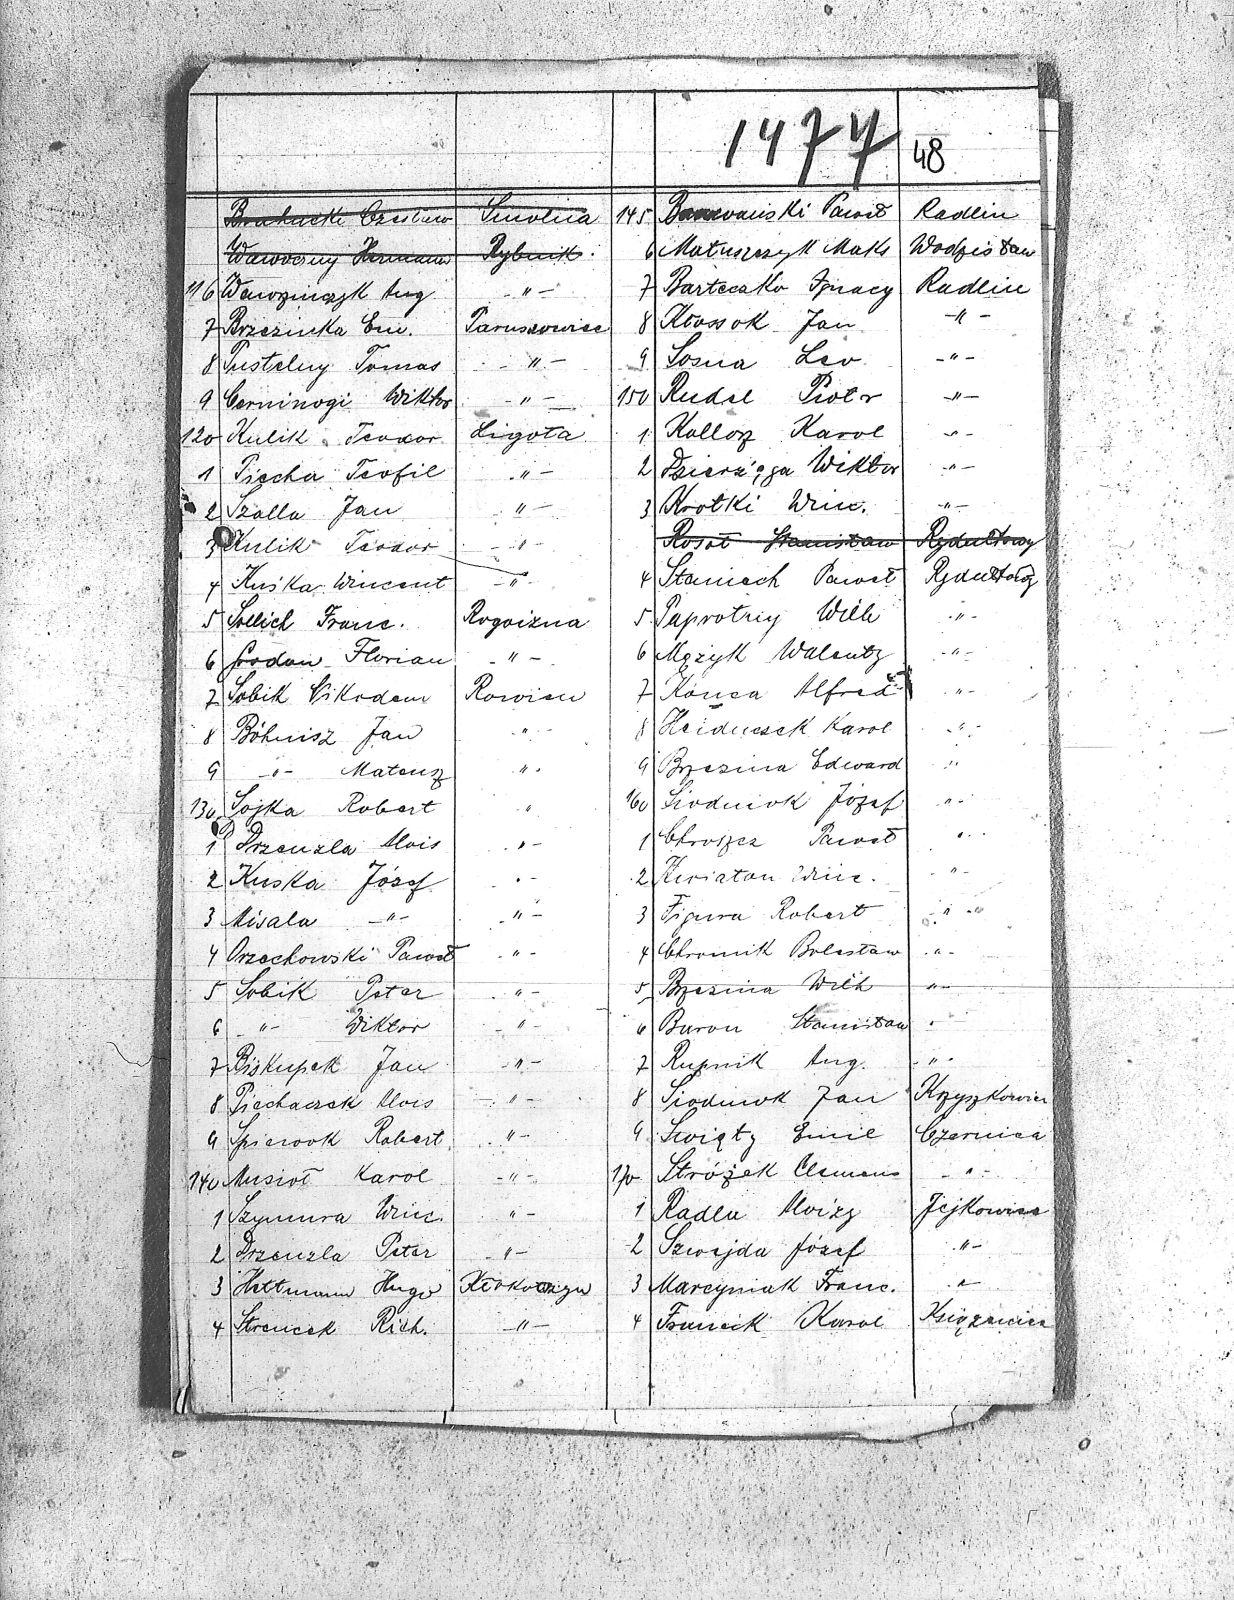 1477
48
Czesław Smolna
Hermann Rybnik.
116 Wawrzinczyk Aug. -"-
7 Brzezinka Em. Paruszowiec
8 Pustelny Tomas -"-
9 Cerninogi Wiktor -"-
120 Kulik Teodor Ligota
1 Piecha Teofil -"-
2 Szalla Jan -"-
3 Kulik Teodor -"-
4 Kuśka Wincent -"-
5 Sollich Franc. Rogoizna
6 Florian -"-
7 Sobik Nikodem Rowien
8 Böhnisz Jan -"-
9 -"- Mateusz -"-
130 Sojka Robert "
1 Drzenzla Alois -"-
2 Kuska Józef -"-
3 Misala -"- -"-
4 Orzechowski Paweł -"-
5 Sobik Peter -"-
6 -"- Wiktor -"-
7 Biskupek Jan -"-
8 Piechaczek Alois -"-
9 Robert -"-
140 Musioł Karol -"-
1 Szymura Winc. -"-
2 Drzenzla Peter -"-
3 Hettmann Hugo Kłokoczyn
4 Strencek Rich. -"-
145 Paweł Radlin
6 Matuszczyk Maks Wodzisław
7 Barteczko Ignacy Radlin
8 Kłossok Jan -"-
9 Sosna Leo -"-
150 Rudel Piotr -"-
1 Kollorz Karol -"-
2 Dzierżęga Wiktor -"-
3 Krotki Winc. -"-
Rosoł Stanisław Rydułtowy
4 Staniech Paweł Rydułtowy
5 Paprotny Wilh -"-
6 Mężyk Walenty -"-
7 Konca Alfred -"-
8 Heiduczek Karol -"-
9 Brzezina Edward "
160 Siodmok Józef -"-
1 Chroszcz Paweł "
2 Kwiaton Winc. -"-
3 Figura Robert -"-
4 Chromik Bolesław -"-
5 Brzezina Wilh -"-
6 Buron Stanisław "
7 Rupnik Aug. -"-
8 Siodmok Jan Krzyszkowice
9 Święty Emil Czernica
170 Stróżek Clemens -"-
1 Radla Alojzy Jejkowice
2 Szwejda Józef -"-
3 Marcyniak Franc. "
4 Franek Karol Książenice